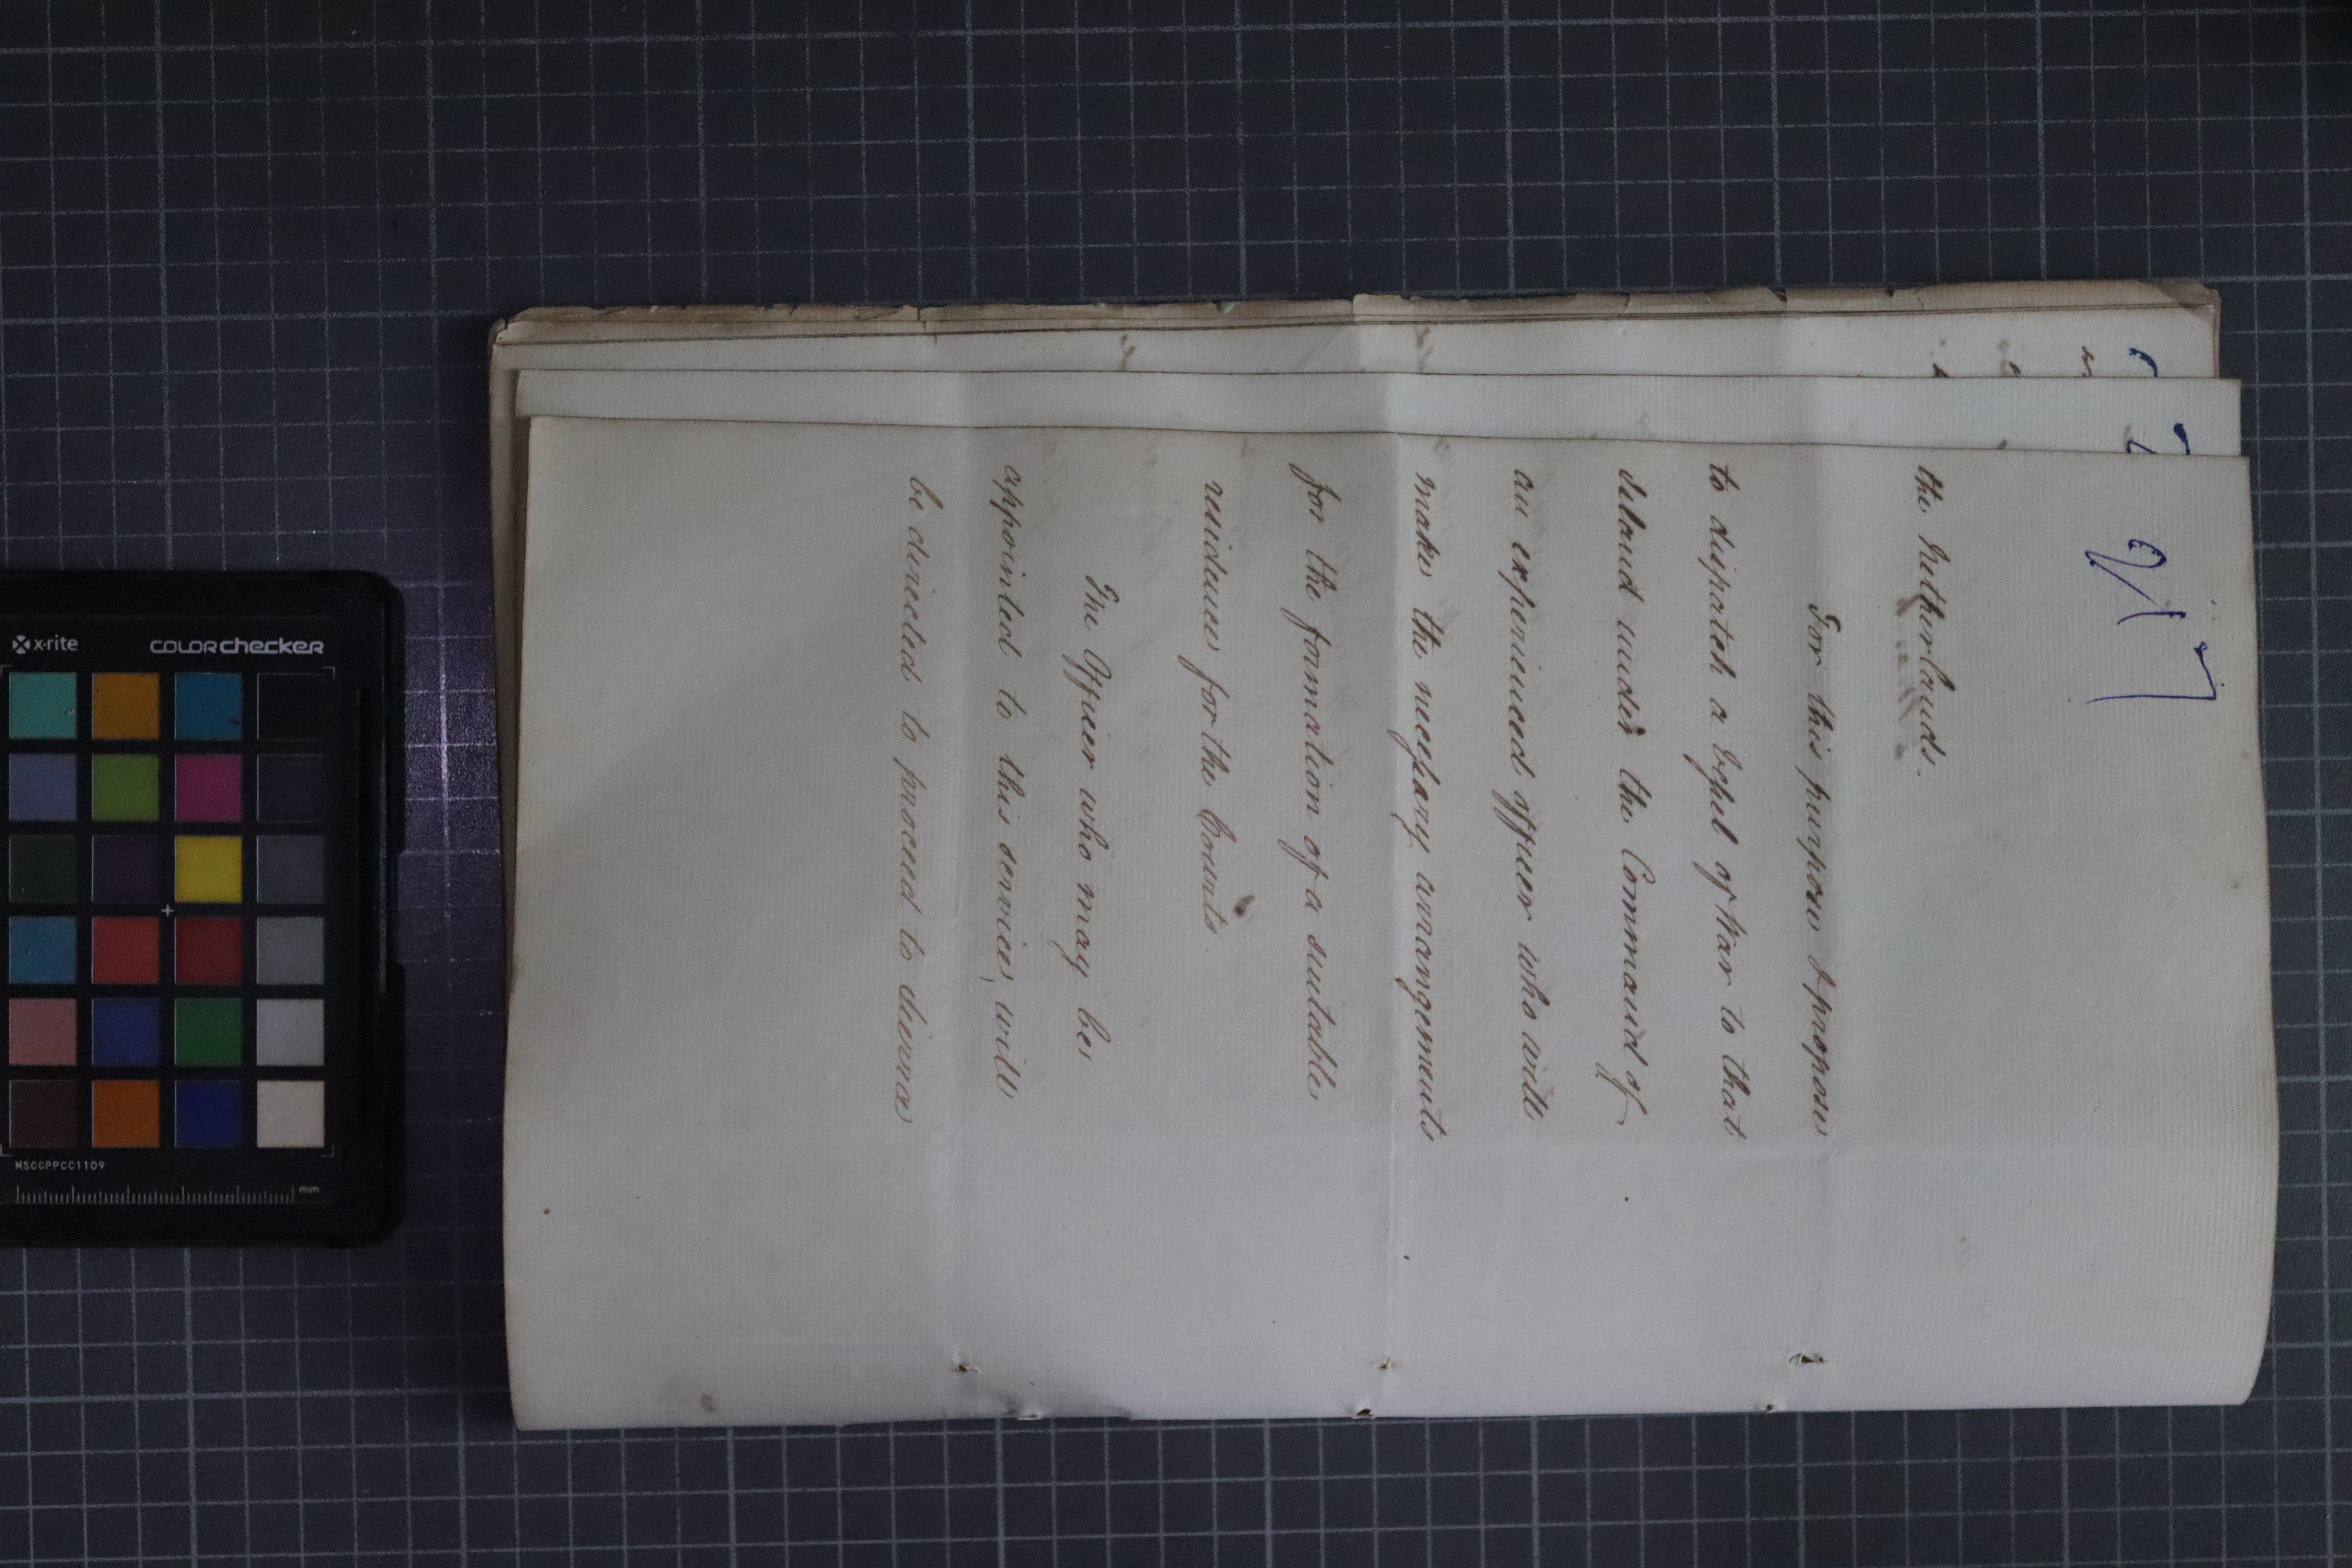 217
the Netherlands.
For this purpose I propose
to dispatch a Vessel of War to that
Island under the Command of
an experienced officer who will
make the necessary arrangements
for the formation of a suitable
residence for the Counts.
The Officer who may be
appointed to this service, will
be directed to proceed to
x-rite
COLORchecker
MSCCPPCC1109
mm